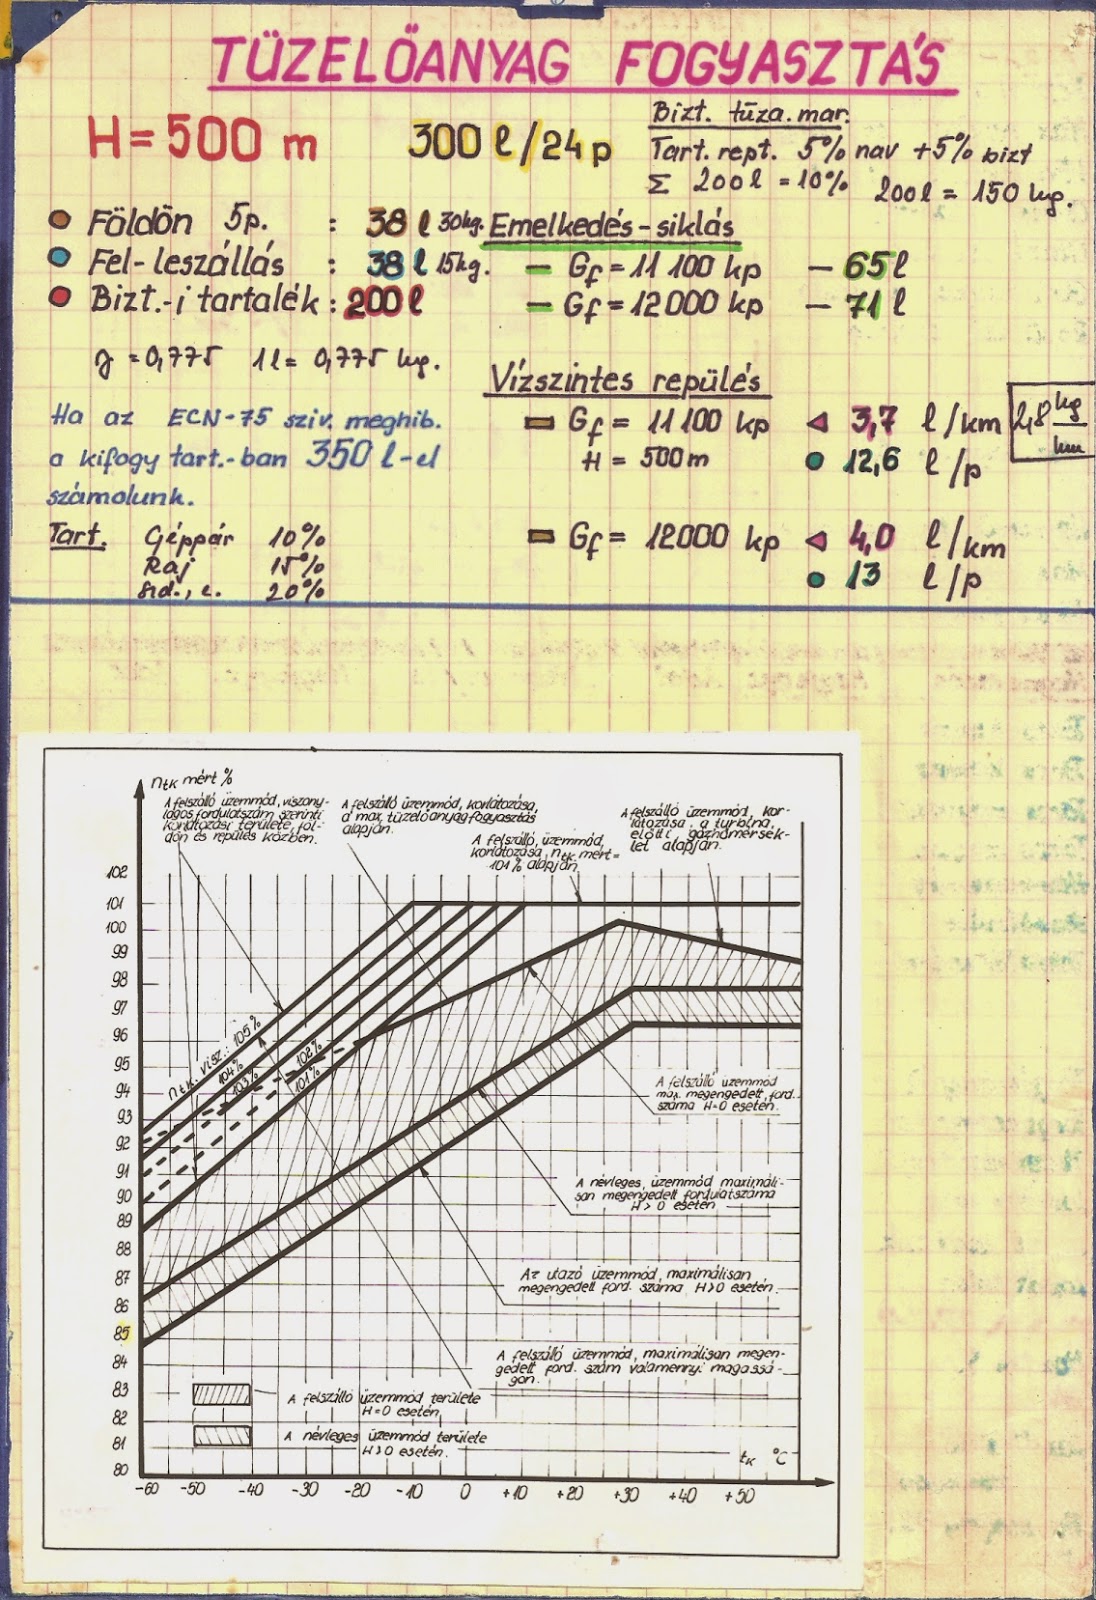 TÜZELŐANYAG FOGYASZTÁS
H = 500 m
300 l/24 p
Bizt. tüza. mar.
Tart. rept. 5% nav +5% bizt
Σ 200 l = 10% 200 l = 150 kg.
Földön 5p. : 38 l 30kg.
Fel-leszállás : 38 l 15kg.
Bizt.-i tartalék : 200 l
γ = 0,775 1 l = 0,775 kg.
Ha az ECN-75 sziv. meghib.
a kifogy tart.-ban 350 l-el
számolunk.
Tart. Géppár 10%
Raj 15%
20%
Emelkedés-siklás
– Gf = 11 100 kp – 65 l
– Gf = 12000 kp – 71 l
Vízszintes repülés
Gf = 11 100 kp 3,7 l/km
2,8 kg/km
H = 500 m 12,6 l/p
Gf = 12000 kp 4,0 l/km
13 l/p
ntk mért %
A felszálló üzemmód, viszony-
lagos fordulatszám szerinti
korlátozási területe, föl-
dön és repülés közben.
A felszálló üzemmód, korlátozása,
a max. tüzelőanyagfogyasztás
alapján.
A felszálló, üzemmód,
korlátozása, ntk mért=
101% alapján.
A felszálló üzemmód, kor-
látozása a turbina
előtti gázhőmérsék-
let alapján.
102
101
100
99
98
97
96
95
94
93
92
91
90
89
88
87
86
85
84
83
82
81
80
ntk. visz.: 105%
104%
103%
102%
101%
A felszálló üzemmód
max. megengedett ford.
száma H=0 esetén.
A névleges, üzemmód maximáli-
san megengedett fordulatszáma
H > 0 esetén
Az utazó üzemmód, maximálisan
megengedett ford. száma H>0 esetén.
A felszálló üzemmód, maximálisan megen-
gedett ford. szám valamennyi magassá-
gon.
A felszálló üzemmód területe
H=0 esetén
A névleges üzemmód területe
H>0 esetén.
tk °C
-60 -50 -40 -30 -20 -10 0 +10 +20 +30 +40 +50